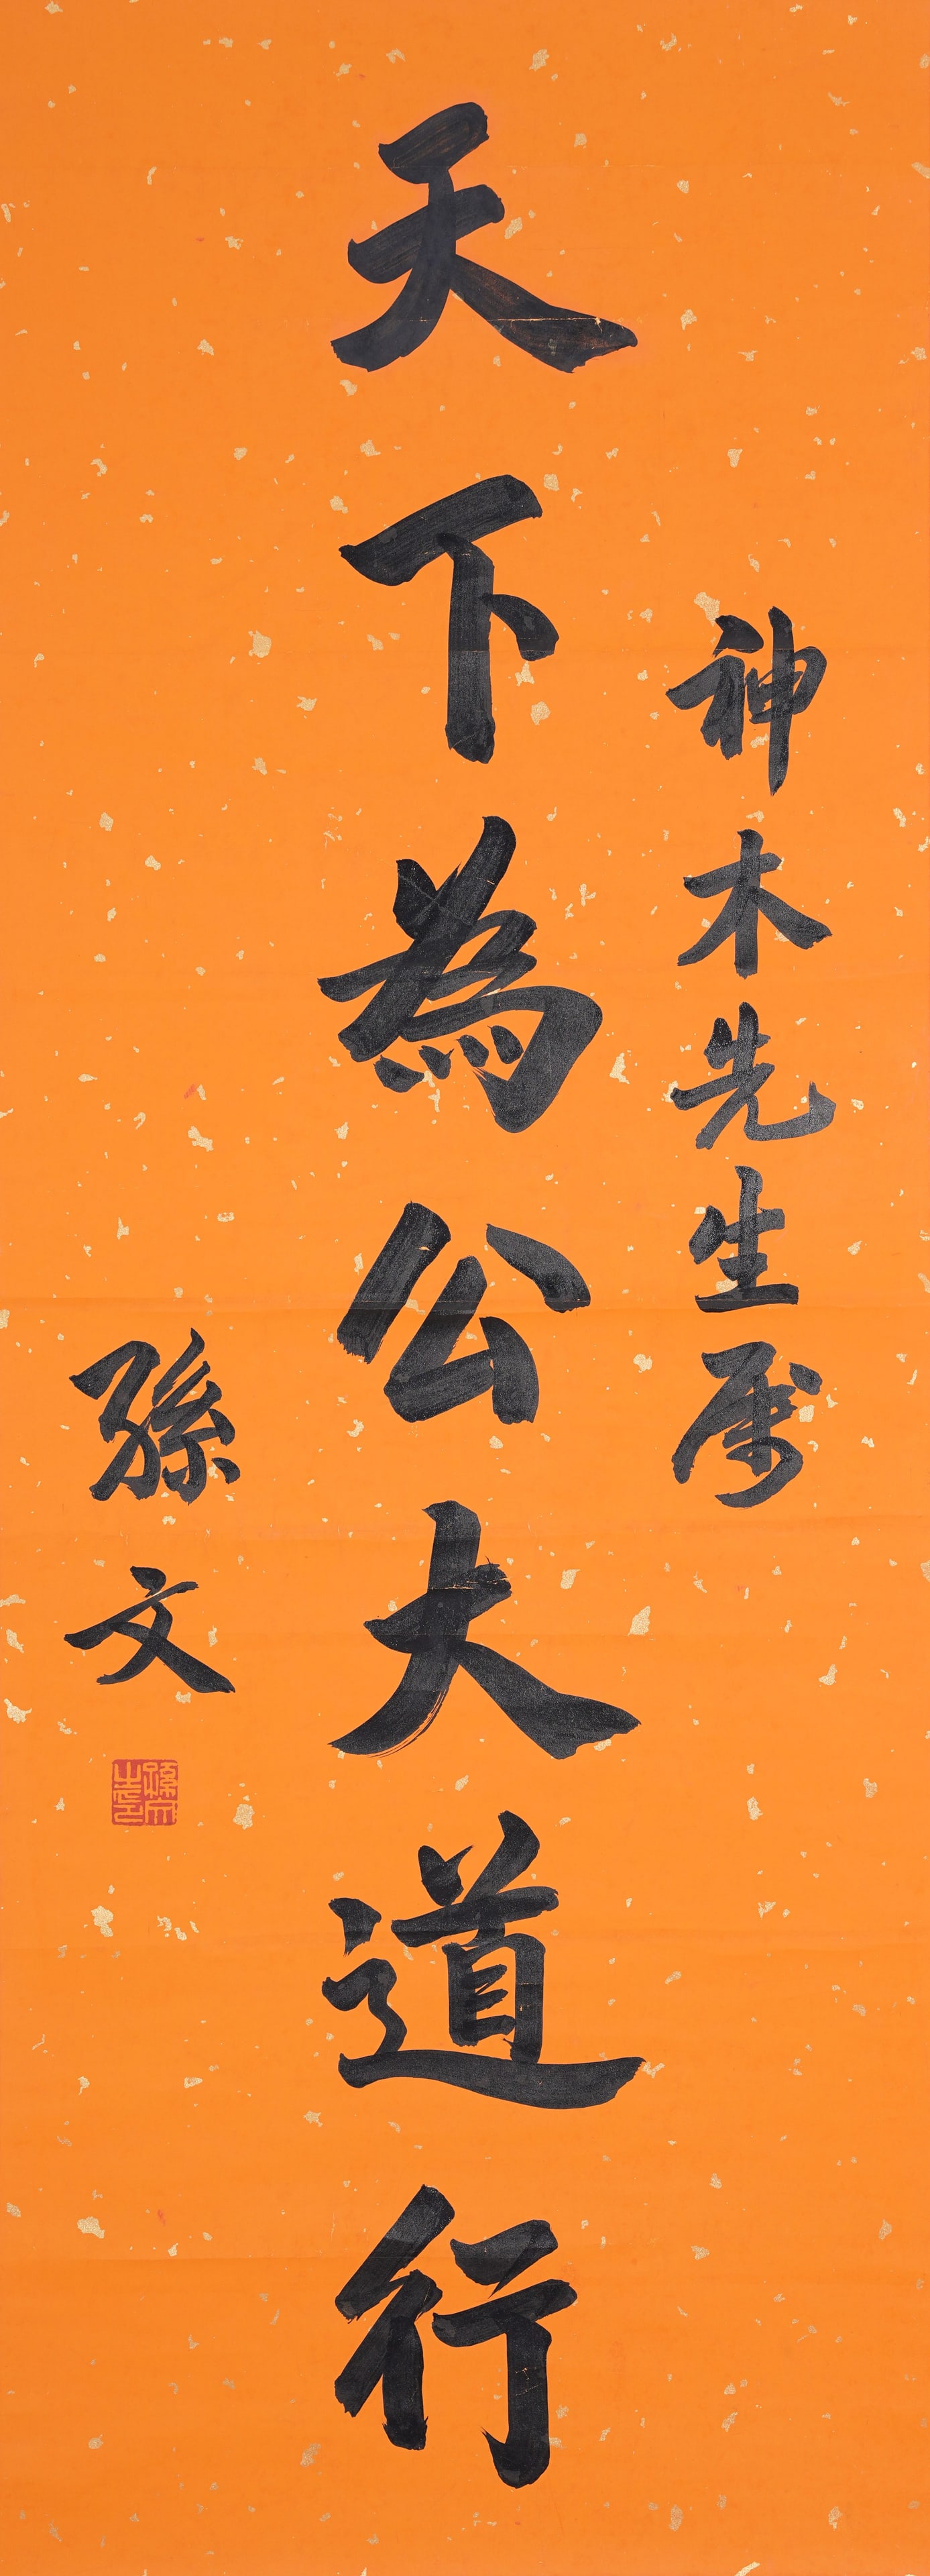 神木先生属
天下為公大道行
孫文
孫文之印